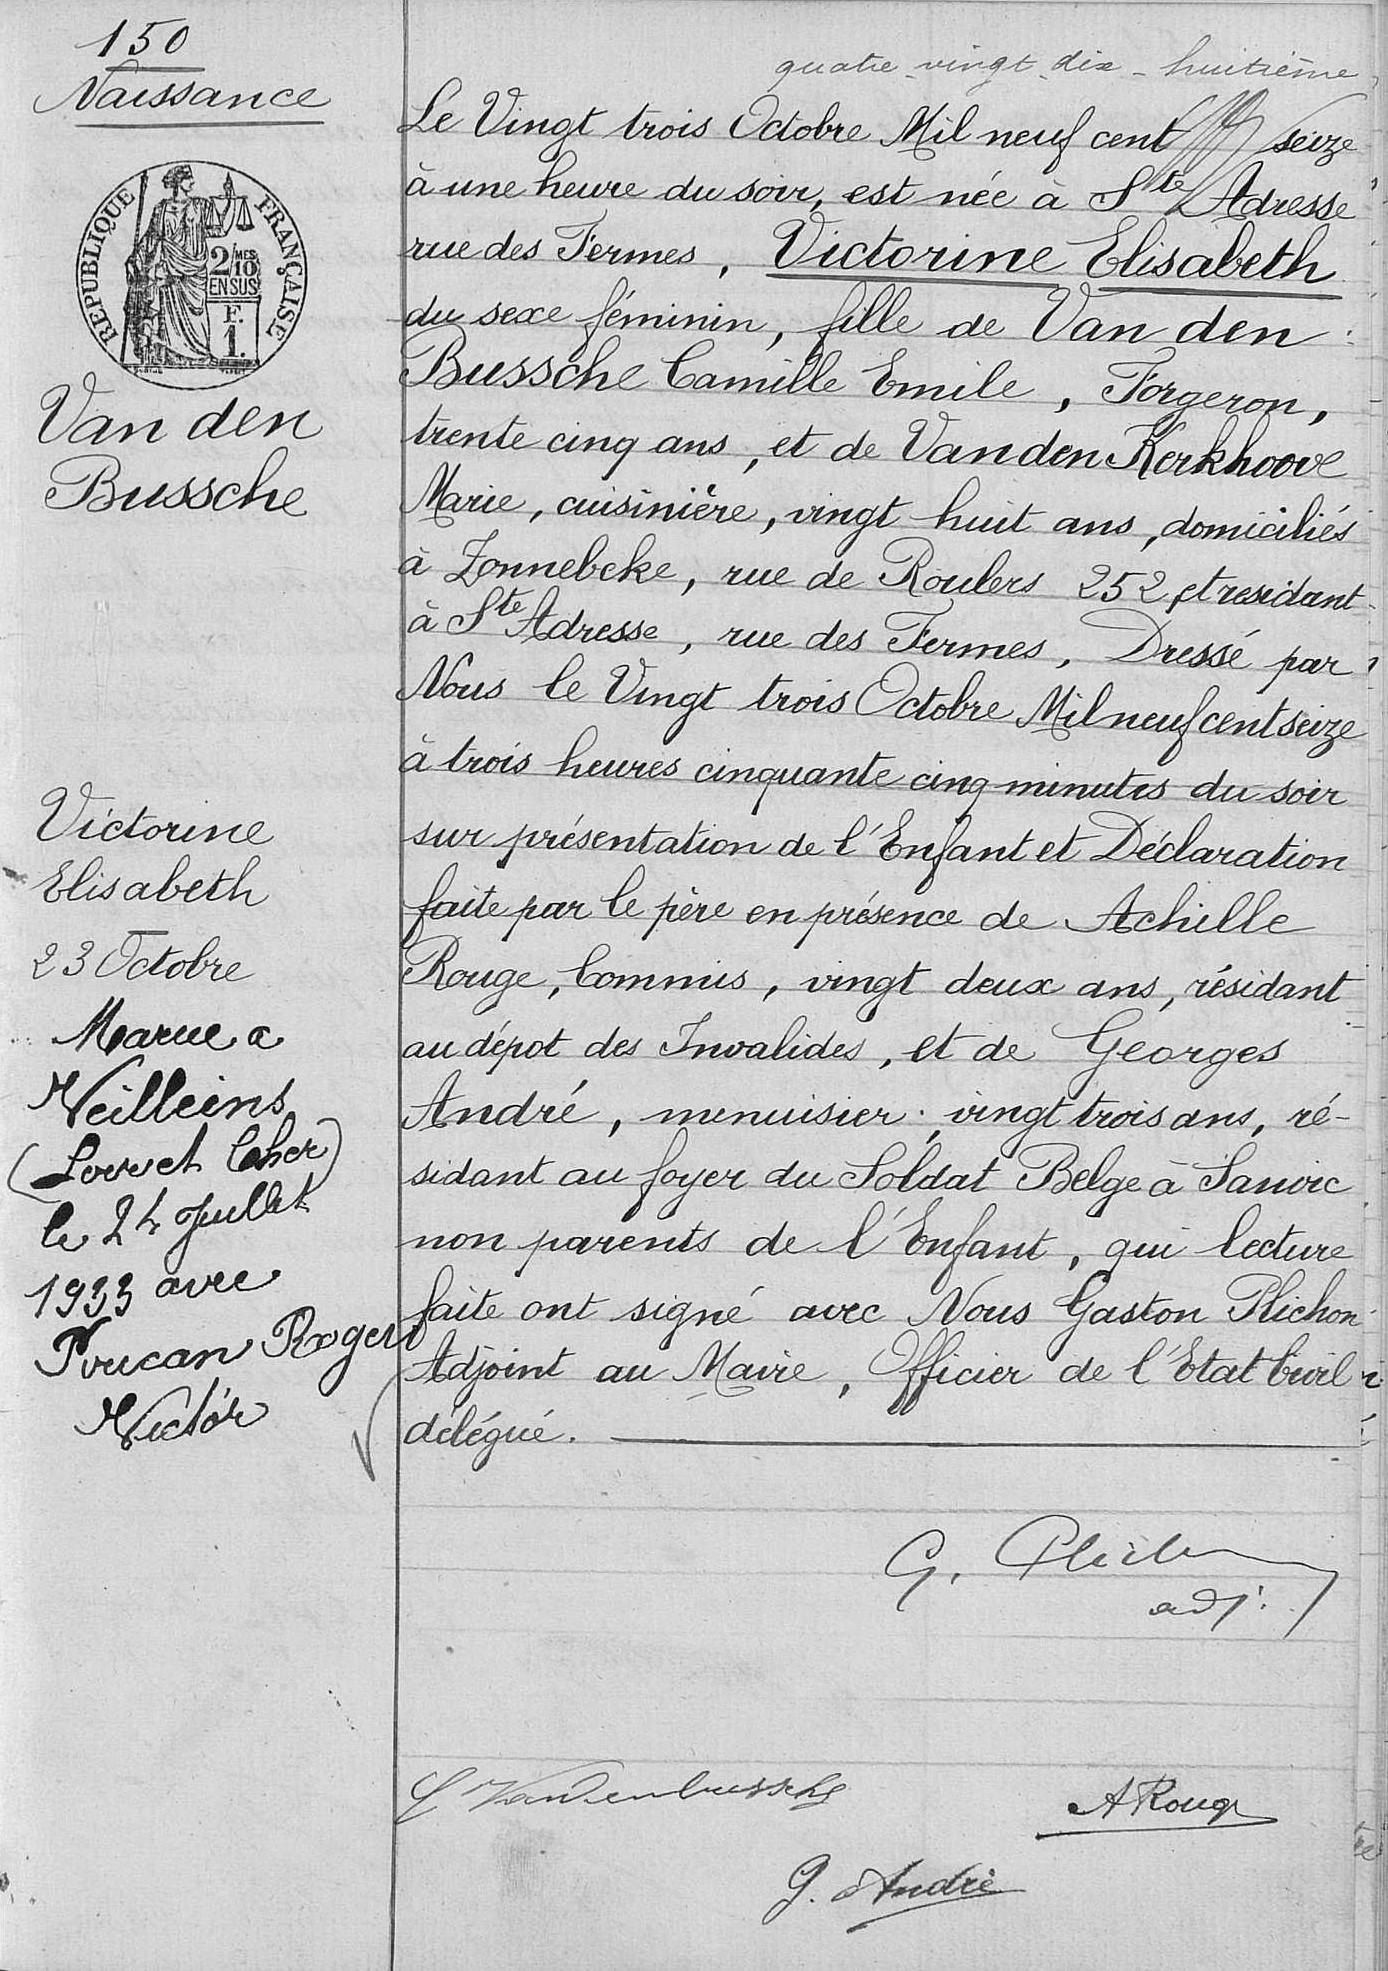 150
Naissance
REPUBLIQUE FRANÇAISE
2/MES
10
EN SUS
F.
1.
Van den
Bussche
Victorine
Elisabeth
23 Octobre
Mariée a
Veilleins
(Loir et Cher)
le 24 Juillet
1933 avec
Poucan Roger
Victor
quatre-vingt-dix-huitième
Le Vingt trois Octobre Mil neuf cent seize
à une heure du soir, est née à Ste Adresse
rue des Fermes, Victorine Elisabeth
du sexe féminin, fille de Van den
Bussche Camille Emile, Forgeron,
trente cinq ans, et de Vanden Kerkhoove
Marie, cuisinière, vingt huit ans, domiciliés
à Zonnebeke, rue de Roulers 252, et residant
à Ste Adresse, rue des Fermes, Dressé par
Nous le Vingt trois Octobre Mil neuf cent seize
à trois heures cinquante cinq minutes du soir
sur présentation de l'Enfant et Déclaration
faite par le père en présence de Achille
Rouge, Commis, vingt deux ans, résidant
au dépot des Invalides, et de Georges
André, menuisier, vingt trois ans, ré-
sidant au foyer du Soldat Belge à Sanvic
non parents de l'Enfant, qui lecture
faite ont signé avec Nous Gaston Plichon
Adjoint au Maire, Officier de l'Etat Civil
délégué.
G. Plichon
adj.
C Vandenbussche
A Rouge
G. André